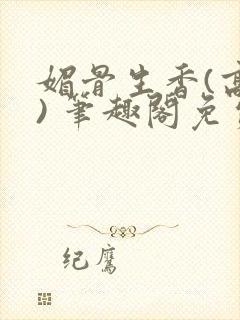 媚骨生香(高
)笔趣阁免
纪鹰